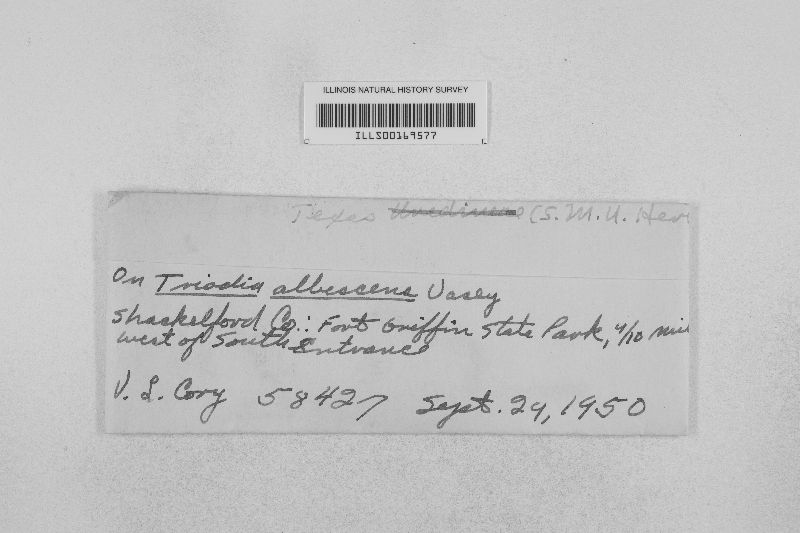 ILLINOIS NATURAL HISTORY SURVEY
ILLS00169577
Texas (S. M. U. Her
On Triodia albescens Vasey
Shackelford Co.: Fort Griffin State Park, 4/10 mil
west of South Entrance
V. L. Cory 58427 Sept. 24, 1950